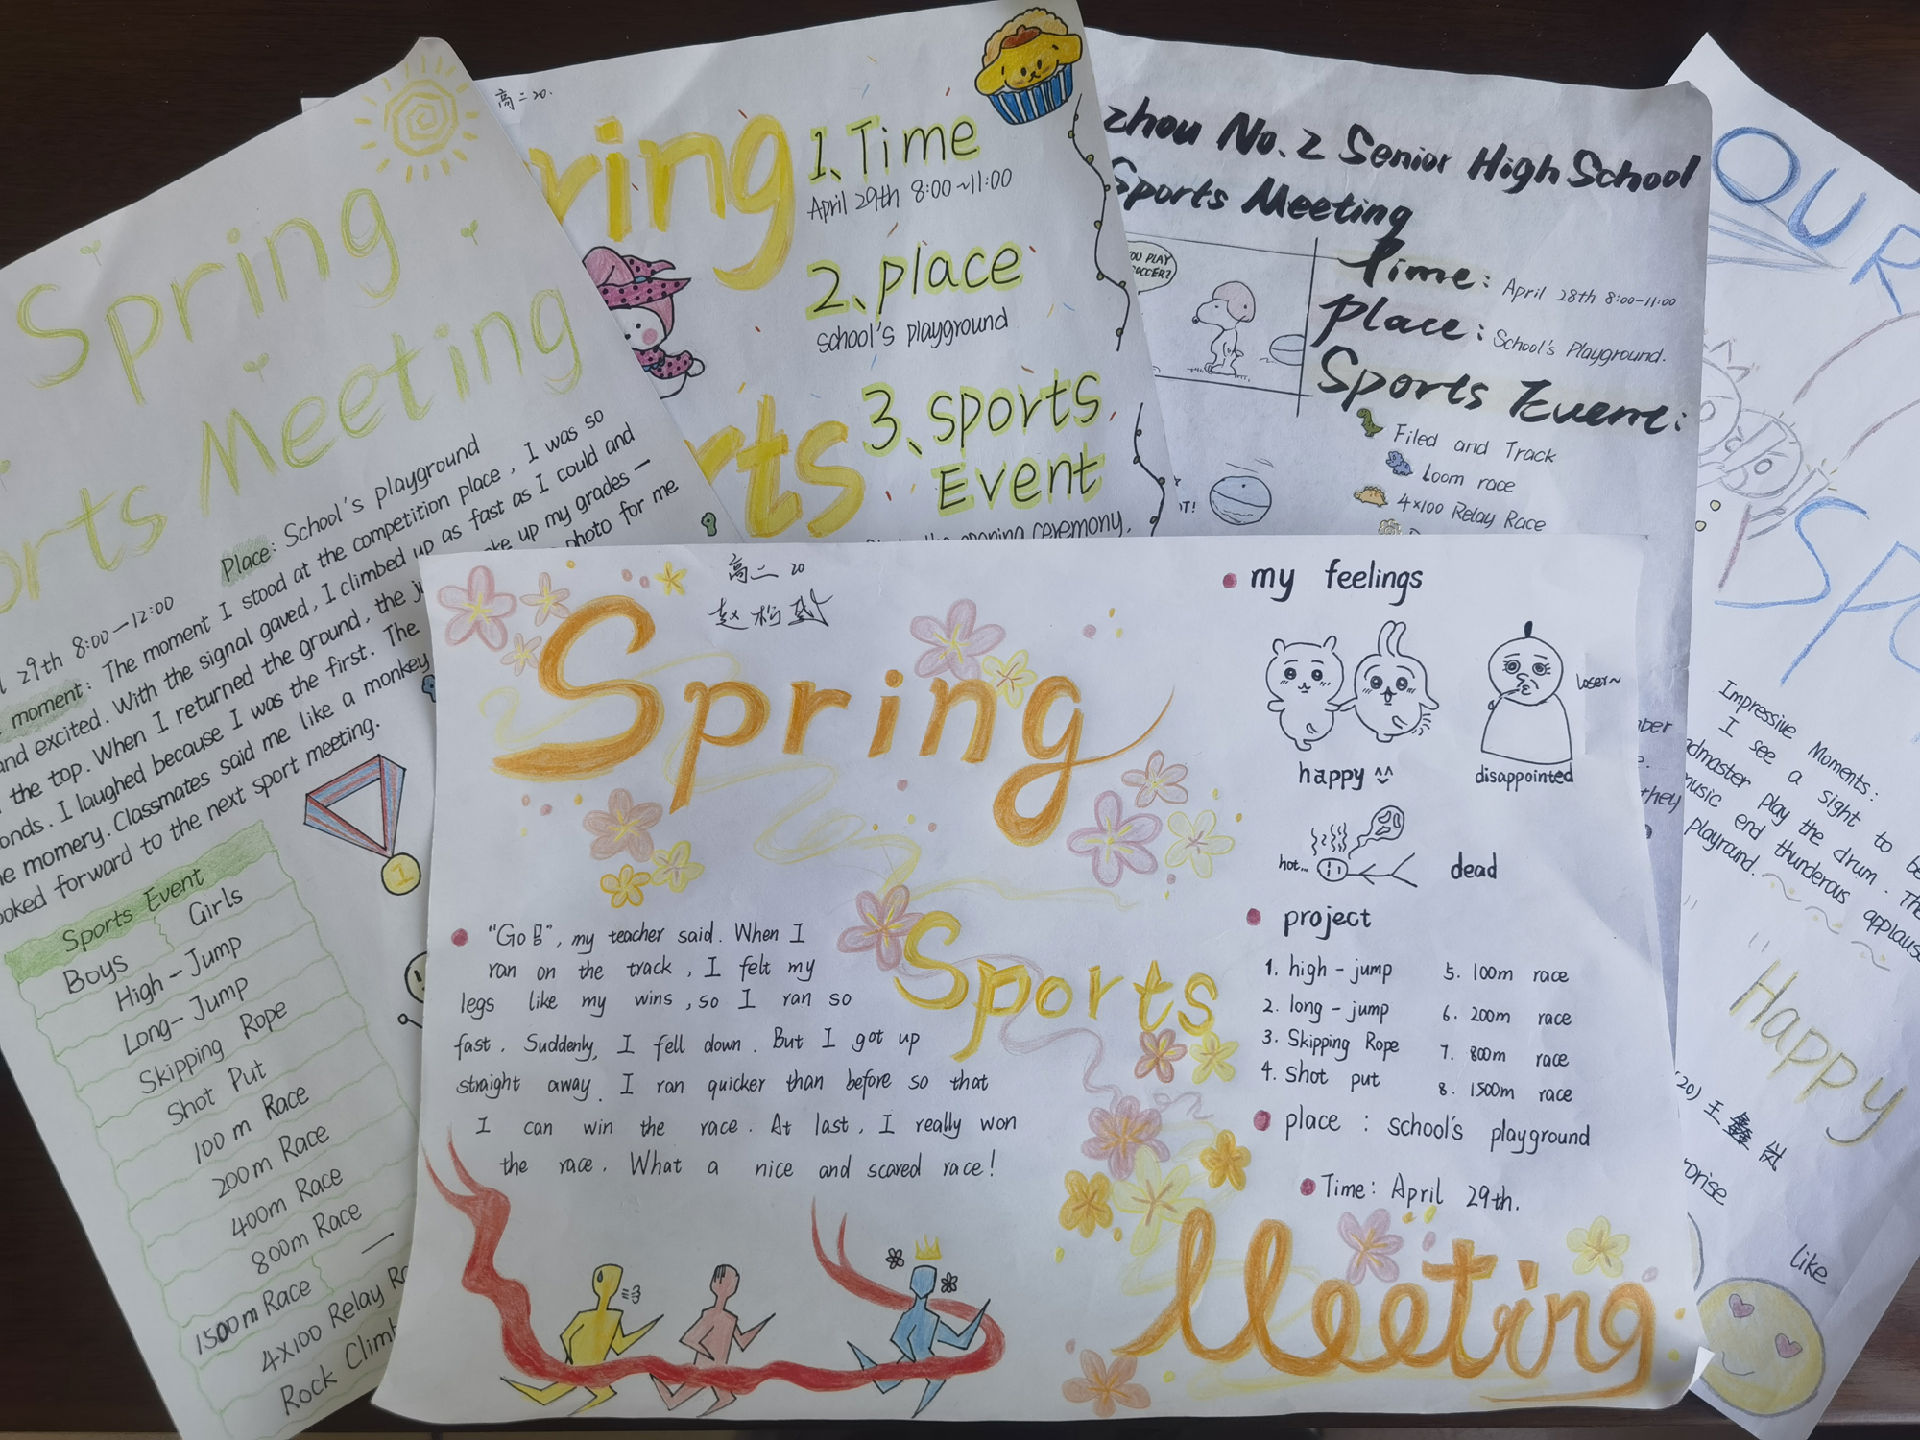 Spring
orts Meeting
Place: School's playground
29th 8:00—12:00
moment: The moment I stood at the competition place, I was so
and excited. With the signal gaved, I climbed up as fast as I could and
the top. When I returned the ground, the
up my grades —
onds. I laughed because I was the first. The
photo for me
momery. Classmates said me like a monkey
ooked forward to the next sport meeting.
Sports Event
Boys Girls
High-Jump
Long-Jump
Skipping Rope
Shot Put
100m Race
200m Race
400m Race
800m Race
1500m Race —
4x100 Relay
Rock
1
高二20.
ring
rts
1、Time
April 29th 8:00~11:00
2、place
school's playground
3、sports
Event
the opening ceremony,
zhou No.2 Senior High School
Sports Meeting
OU PLAY
OCCER?
Time: April 28th 8:00-11:00
Place: School's Playground.
Sports Event:
Filed and Track
Loom race
4x100 Relay Race
IT!
they
高二 20
Spring
Sports
Meeting
"Go!!", my teacher said. When I
ran on the track, I felt my
legs like my wins, so I ran so
fast. Suddenly, I fell down. But I got up
straight away. I ran quicker than before so that
I can win the race. At last, I really won
the race. What a nice and scared race!
my feelings
happy ^^
loser~
disappointed
hot...
dead
project
1. high-jump
2. long-jump
3. Skipping Rope
4. shot put
5. 100m race
6. 200m race
7. 800m race
8. 1500m race
place : school's playground
Time: April 29th.
OUR
Impressive Moments:
I see a sight to be
admaster play the drum. The
music end thunderous applause
playground.
"Happy
(20) 王鑫
orise
like